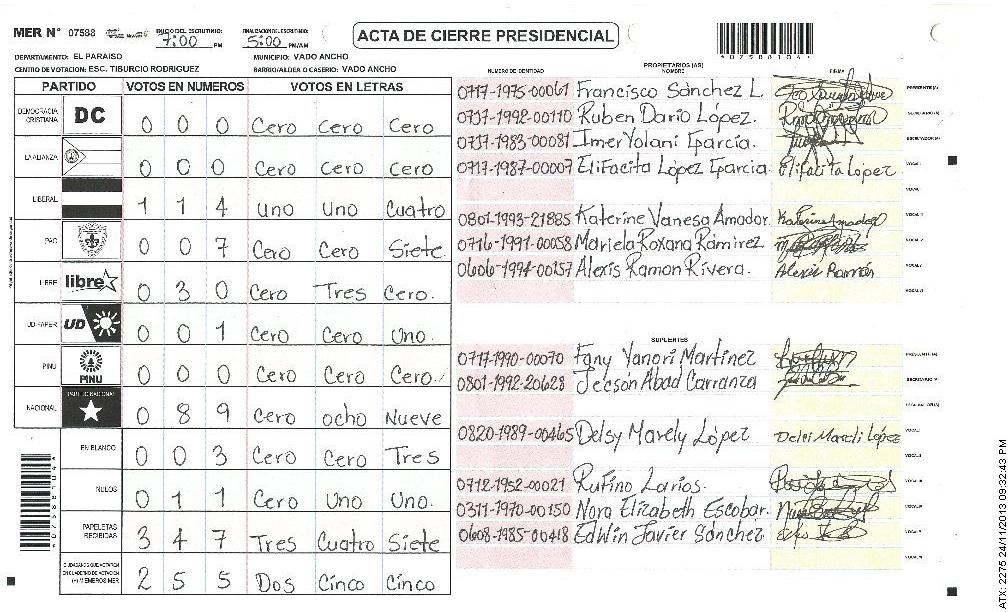 MER N° 07588 INICIO DEL ESCRUTINIO: 7:00 PM FINALIZACION DEL ESCRUTINIO: 5:00 PM/AM ACTA DE CIERRE PRESIDENCIAL
DEPARTAMENTO: EL PARAISO MUNICIPIO: VADO ANCHO
CENTRO DE VOTACION: ESC. TIBURCIO RODRIGUEZ BARRIO/ALDEA O CASERIO: VADO ANCHO
PARTIDO VOTOS EN NUMEROS VOTOS EN LETRAS
DEMOCRACIA CRISTIANA DC 0 0 0 Cero Cero Cero
LA ALIANZA 0 0 0 Cero Cero Cero
LIBERAL 1 1 4 uno Uno Cuatro
PAC 0 0 7 Cero Cero Siete
LIBRE libre 0 3 0 Cero Tres Cero.
UD-FAPER UD 0 0 1 Cero Cero Uno.
PINU PINU 0 0 0 Cero Cero Cero.
NACIONAL PARTIDO NACIONAL 0 8 9 Cero ocho Nueve
EN BLANCO 0 0 3 Cero Cero Tres
NULOS 0 1 1 Cero Uno Uno.
PAPELETAS RECIBIDAS 3 4 7 Tres Cuatro Siete
CIUDADANOS QUE VOTARON EN CUADERNO DE VOTACION (+) MIEMBROS MER 2 5 5 Dos Cinco Cinco
PROPIETARIOS (AS)
NUMERO DE IDENTIDAD NOMBRE FIRMA
0717-1975-00061 Francisco Sánchez L. PRESIDENTE (A)
0737-1992-00110 Ruben Dario López. SECRETARIO (A)
0737-1983-00081 Imer Yolani Garcia. ESCRUTADOR (A)
0717-1987-00007 Elifacita López Garcia Elifacita López VOCAL I
0801-1993-21885 Katerine Vanesa Amador. Katerine Amador
0716-1991-00058 Mariela Roxana Ramirez
0606-1994-00157 Alexis Ramon Rivera. Alexis Ramón
SUPLENTES
0717-1990-00070 Fany Yanori Martinez PRESIDENTE (A)
0801-1992-20628 Jecson Abad Carranza SECRETARIO (A)
0820-1989-00465 Delsy Marely López Delci Mareli López
0712-1952-00021 Rufino Larios.
0311-1970-00150 Nora Elizabeth Escobar.
0608-1985-00418 Edwin Javier Sánchez
ATX: 2275 24/11/2013 09:32:43 PM